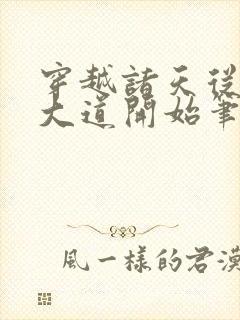 穿越諸天從
大道開始筆
風一樣的君漠